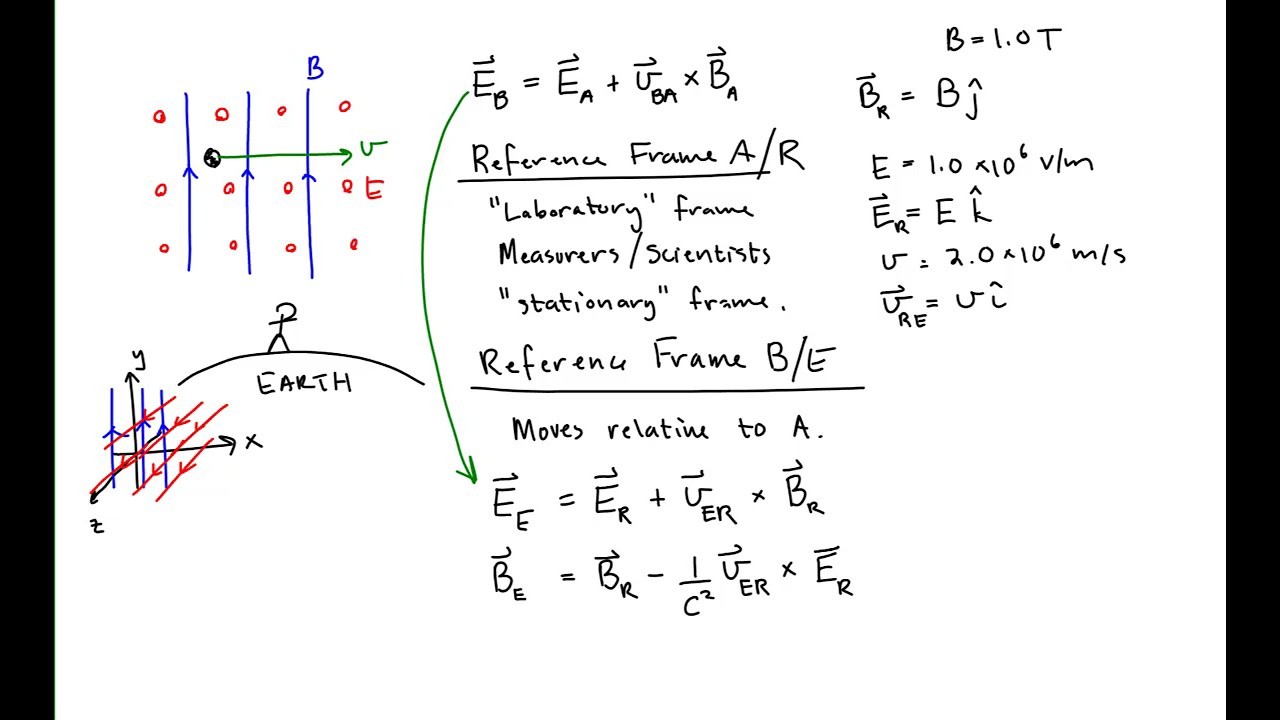 B
v
E
EARTH
y
x
z
E⃗_B = E⃗_A + v⃗_BA × B⃗_A
Reference Frame A/R
"Laboratory" frame
Measurers/Scientists
"stationary" frame.
Reference Frame B/E
Moves relative to A.
E⃗_E = E⃗_R + v⃗_ER × B⃗_R
B⃗_E = B⃗_R - 1/c² v⃗_ER × E⃗_R
B = 1.0 T
B⃗_R = B ĵ
E = 1.0 × 10⁶ V/m
E⃗_R = E k̂
v = 2.0 × 10⁶ m/s
v⃗_RE = v î